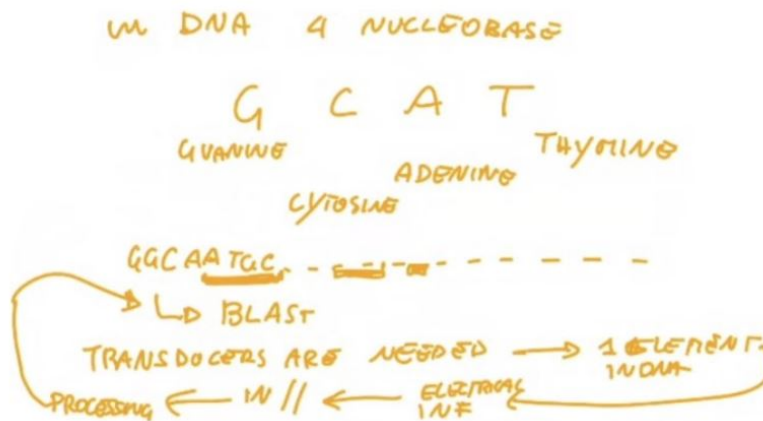 in DNA 4 NUCLEOBASE
G C A T
GUANINE THYMINE
ADENINE
CYTOSINE
GGCAATGC
BLAST
TRANSDUCERS ARE NEEDED → 1 ELEMENT
IN DNA
PROCESSING ← IN // ← ELECTRICAL
INF